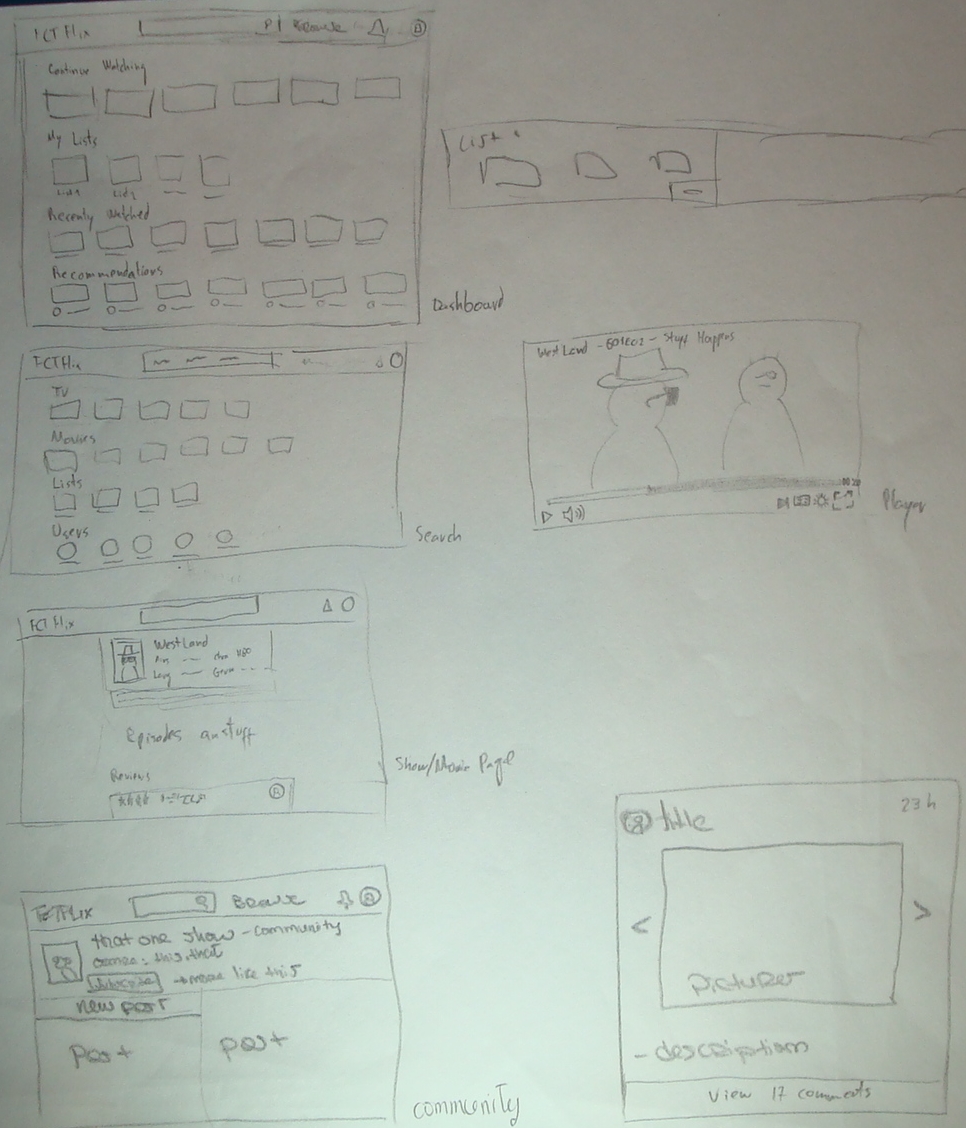 FCTFlix Browse
Continue Watching
My Lists
List1 List2
Recently Watched
Recommendations
Dashboard
List
FCTFlix
TV
Movies
Lists
Users
Search
West Land - S01E02 - Stuff Happens
Player
FCTFlix
West Land
HBO
Episodes an stuff
Reviews
Show/Movie Page
FCTFlix Browse
that one show - community
genre: this, that
subscribe → more like this
new post
post post
community
title 23h
< >
pictures
- description
View 17 comments